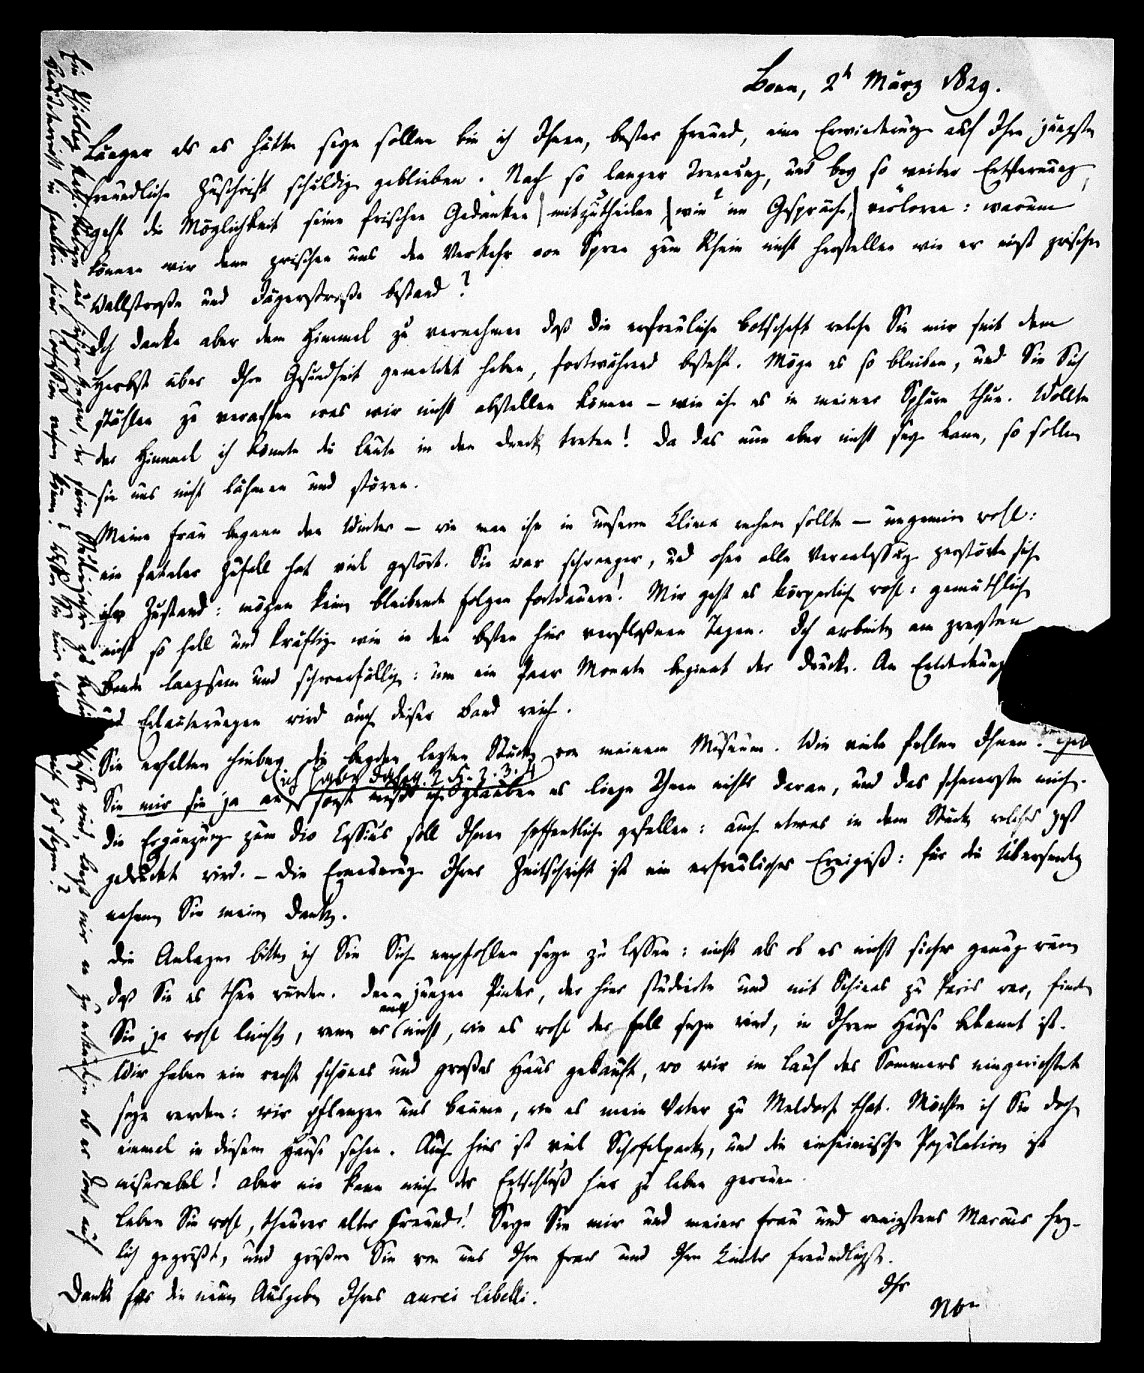 Bonn, 2t März 1829.
Länger als es hätte seyn sollen bin ich Ihnen, bester Freund, eine Erwiederung auf Ihre jüngste
freundliche Zuschrift schuldig geblieben. Nach so langer Trennung, und bey so weiter Entfernung,
geht die Möglichkeit seine frischen Gedanken mitzutheilen wie im Gespräche, verloren: warum
können wir denn zwischen uns den Verkehr von Spree zum Rhein nicht herstellen wie er einst zwischen
Wallstraße und Jägerstraße bestand?
Ich danke aber dem Himmel zu vernehmen daß die erfreuliche Botschaft welche Sie mir seit dem
Herbst über Ihre Gesundheit gemeldet haben, fortwährend besteht. Möge es so bleiben, und Sie Sich
stählen zu verachten was wir nicht abstellen können – wie ich es in meiner Sphäre thue. Wollte
der Himmel ich könnte die Leute in den Dreck treten! Da das nun aber nicht seyn kann, so sollen
sie uns nicht lähmen und stören.
Meine Frau begann den Winter – wie man ihn in unserm Klima rechnen sollte – ungemein wohl:
ein fataler Zufall hat viel gestört. Sie war schwanger, und ohne alle Veranlassung zerstörte sich
ihr Zustand: mögen keine bleibende Folgen fortdauern! Mir geht es körperlich wohl: gemüthlich
nicht so hell und kräftig wie in den besten hier verfloßenen Tagen. Ich arbeite am zweyten
Bande langsam und schwerfällig: um ein Paar Monate beginnt der Druck. An Entdeckung
und Erläuterungen wird auch dieser Band reich.
Sie erhalten hiebey die beyden letzten Stücke von meinem Museum. Wie viele fehlen Ihnen?
Sie mir sie ja an sonst muß ich glauben es liege Ihnen nichts daran, und das schmerzte mich.
Die Ergänzung zum Dio Cassius soll Ihnen hoffentlich gefallen: auch etwas in dem Stück welches jetzt
gedruckt wird. – Die Erneuerung Ihrer Zeitschrift ist ein erfreuliches Ereigniß: für die Übersendung
nehmen Sie meinen Dank.
Die Anlagen bitte ich Sie Sich empfohlen seyn zu lassen: nicht als ob es nicht sicher genug wäre
daß Sie es thun würden. Den jungen Pinder, der hier studierte und mit Schinas zu Paris war, finden
Sie ja wohl leicht, wenn er auch nicht, wie es wohl der Fall seyn wird, in Ihrem Hause bekannt ist.
Wir haben ein recht schönes und großes Haus gekauft, wo wir im Lauf des Sommers eingerichtet
seyn werden: wir pflanzen uns Bäume, wie es mein Vater zu Meldorf that. Möchte ich Sie doch
einmal in diesem Hause sehen. Auch hier ist viel Schofelpack, und die einheimische Population ist
miserabel! aber nie kann mich der Entschluß hier zu leben gereuen.
Leben Sie wohl, theurer alter Freund! Seyn Sie mir und meiner Frau und wenigstens Marcus herz-
lich gegrüßt, und grüßen Sie von uns Ihre Frau und Ihre Kinder freundlichst.
Ihr
Nbr
Dank für die neue Ausgabe Ihres aurei libelli.